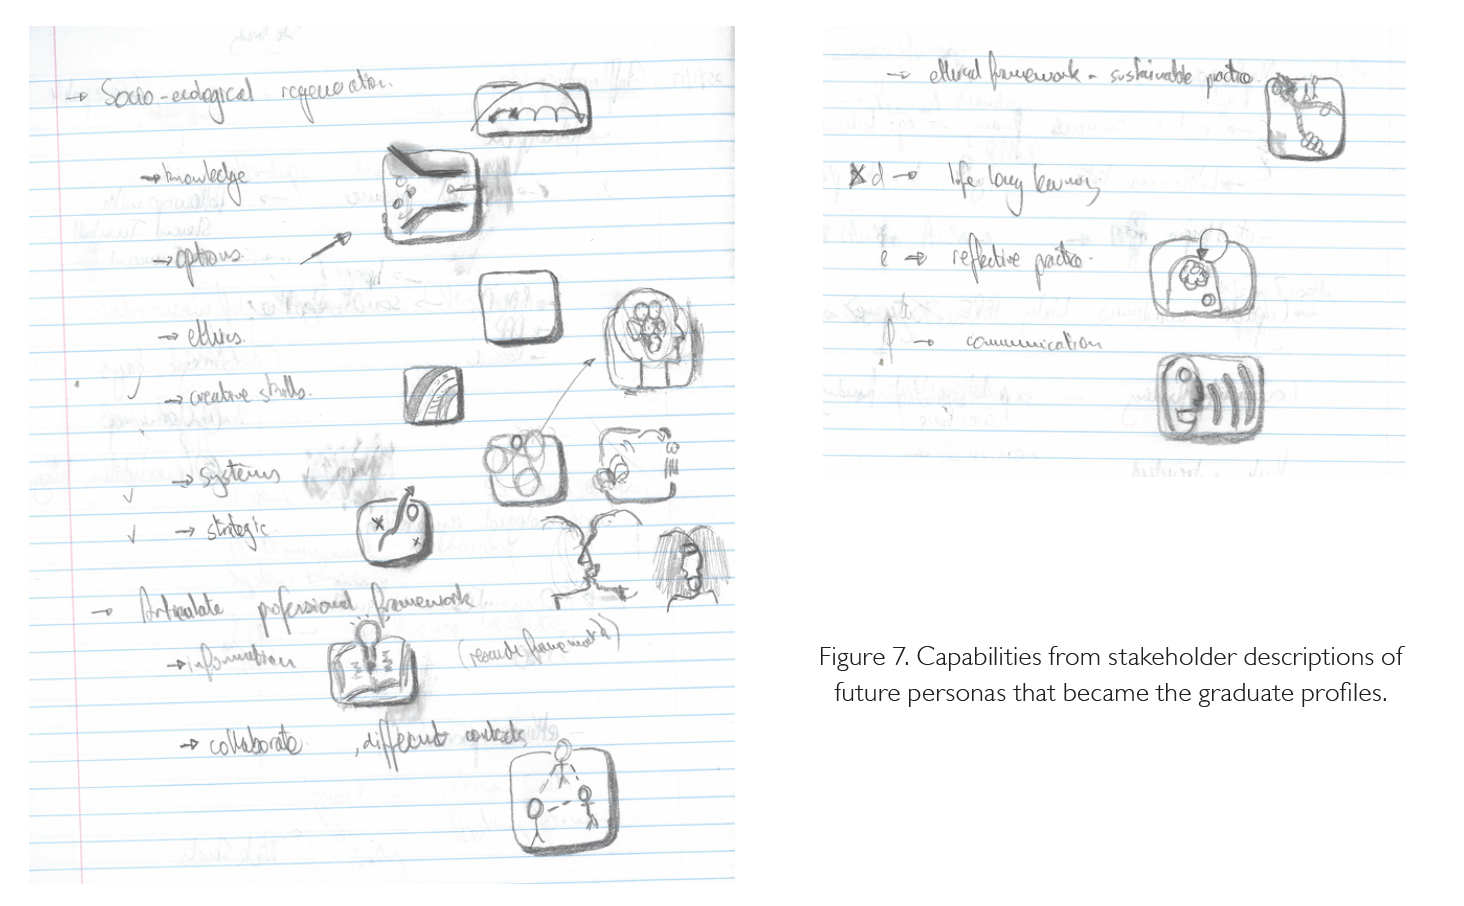 → Socio-ecological regeneration.
→ knowledge
→ options.
→ ethics.
✓ → creative skills.
✓ → systems
✓ → strategic
→ Articulate professional framework
→ information
→ collaborate , different contexts
→ ethical framework - sustainable practice.
d → life long learning
e → reflective practice.
f → communication
Figure 7. Capabilities from stakeholder descriptions of
future personas that became the graduate profiles.